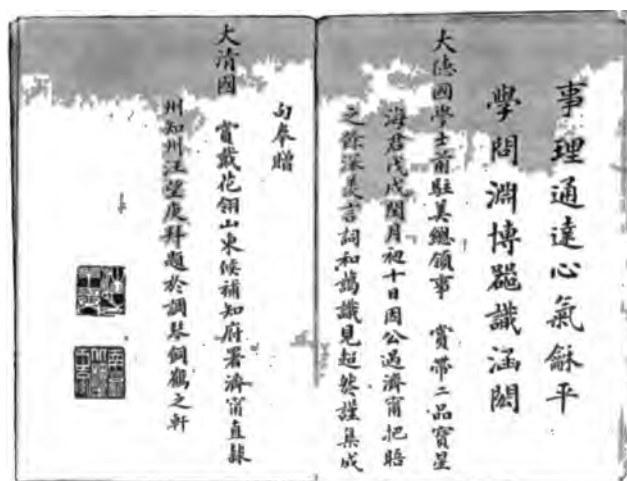 事理通達心氣龢平
學問淵博器識涵閎
大德國學士前駐美總領事 賞帶二品寶星
海君戊戌閏月初十日因公過濟甯把晤
之餘深美言詞和藹識見超然謹集成
句奉贈
大清國 賞戴花翎山東候補知府署濟甯直隸
州知州汪望庚拜題於調琴飼鶴之軒